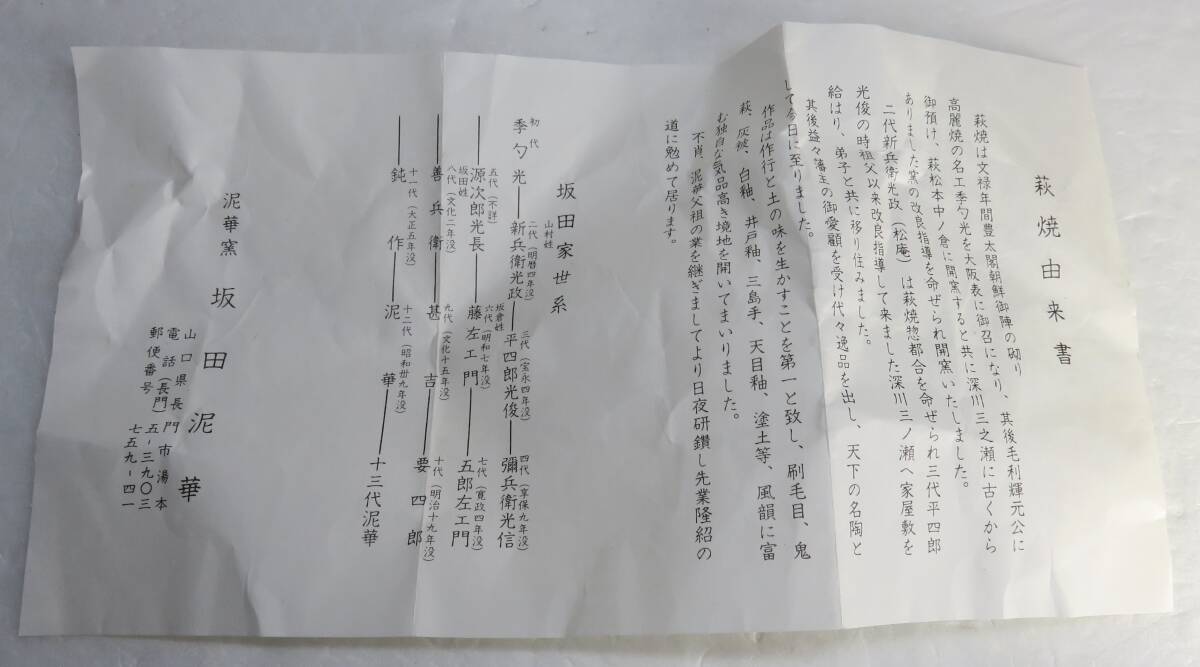 萩焼由来書
萩焼は文禄年間豊太閤朝鮮御陣の砌り
高麗焼の名工季勺光を大阪表に御召になり、其後毛利輝元公に
御預け、萩松本中ノ倉に開窯すると共に深川三之瀬に古くから
ありました窯の改良指導を命ぜられ開窯いたしました。
二代新兵衛光政(松庵)は萩焼惣都合を命ぜられ三代平四郎
光俊の時祖父以来改良指導して来ました深川三ノ瀬へ家屋敷を
給はり、弟子と共に移り住みました。
其後益々藩主の御愛顧を受け代々逸品を出し、天下の名陶と
して今日に至りました。
作品は作行と土の味を生かすことを第一と致し、刷毛目、鬼
萩、灰被、白釉、井戸釉、三島手、天目釉、塗土等、風韻に富
む独自な気品高き境地を開いてまいりました。
不肖、泥華父祖の業を継ぎましてより日夜研鑽し先業隆紹の
道に勉めて居ります。
坂田家世系
初代
季勺光
山村姓
二代(明暦四年没)
新兵衛光政
三代(宝永四年没)
平四郎光俊
四代(享保九年没)
彌兵衛光信
五代(不詳)
源次郎光長
坂倉姓
六代(明和七年没)
藤左エ門
七代(寛政四年没)
五郎左エ門
坂田姓
八代(文化二年没)
善兵衛
九代(文化十五年没)
甚吉
十代(明治十九年没)
要四郎
十一代(大正五年没)
鈍作
十二代(昭和卅九年没)
泥華
十三代泥華
泥華窯 坂田泥華
山口県長門市湯本
電話(長門)五-三九〇三
郵便番号 七五九-四一